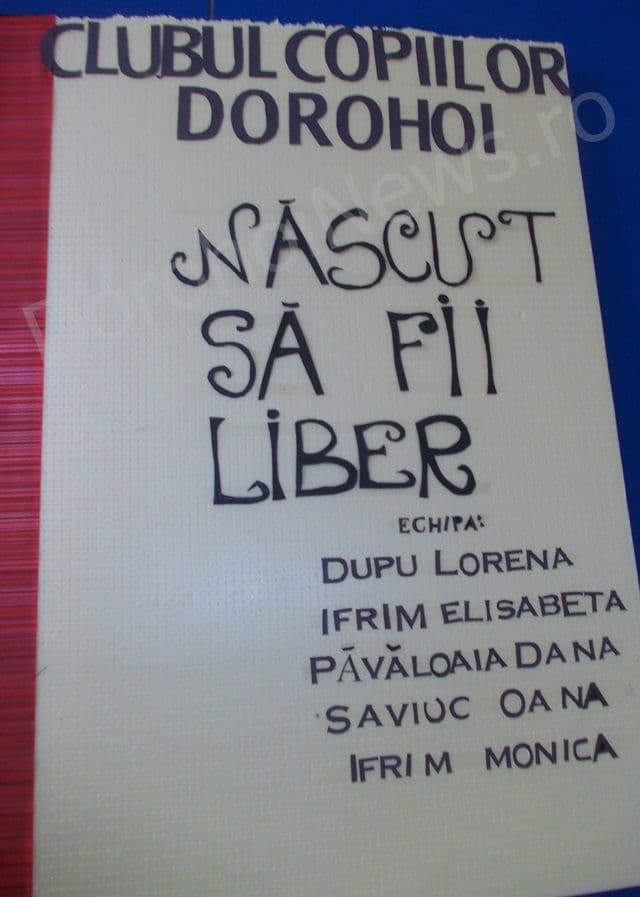 CLUBUL COPIILOR
DOROHOI
NĂSCUT
SĂ FII
LIBER
ECHIPA:
DUPU LORENA
IFRIM ELISABETA
PĂVĂLOAIA DANA
SAVIUC OANA
IFRIM MONICA
DorohoiNews.ro